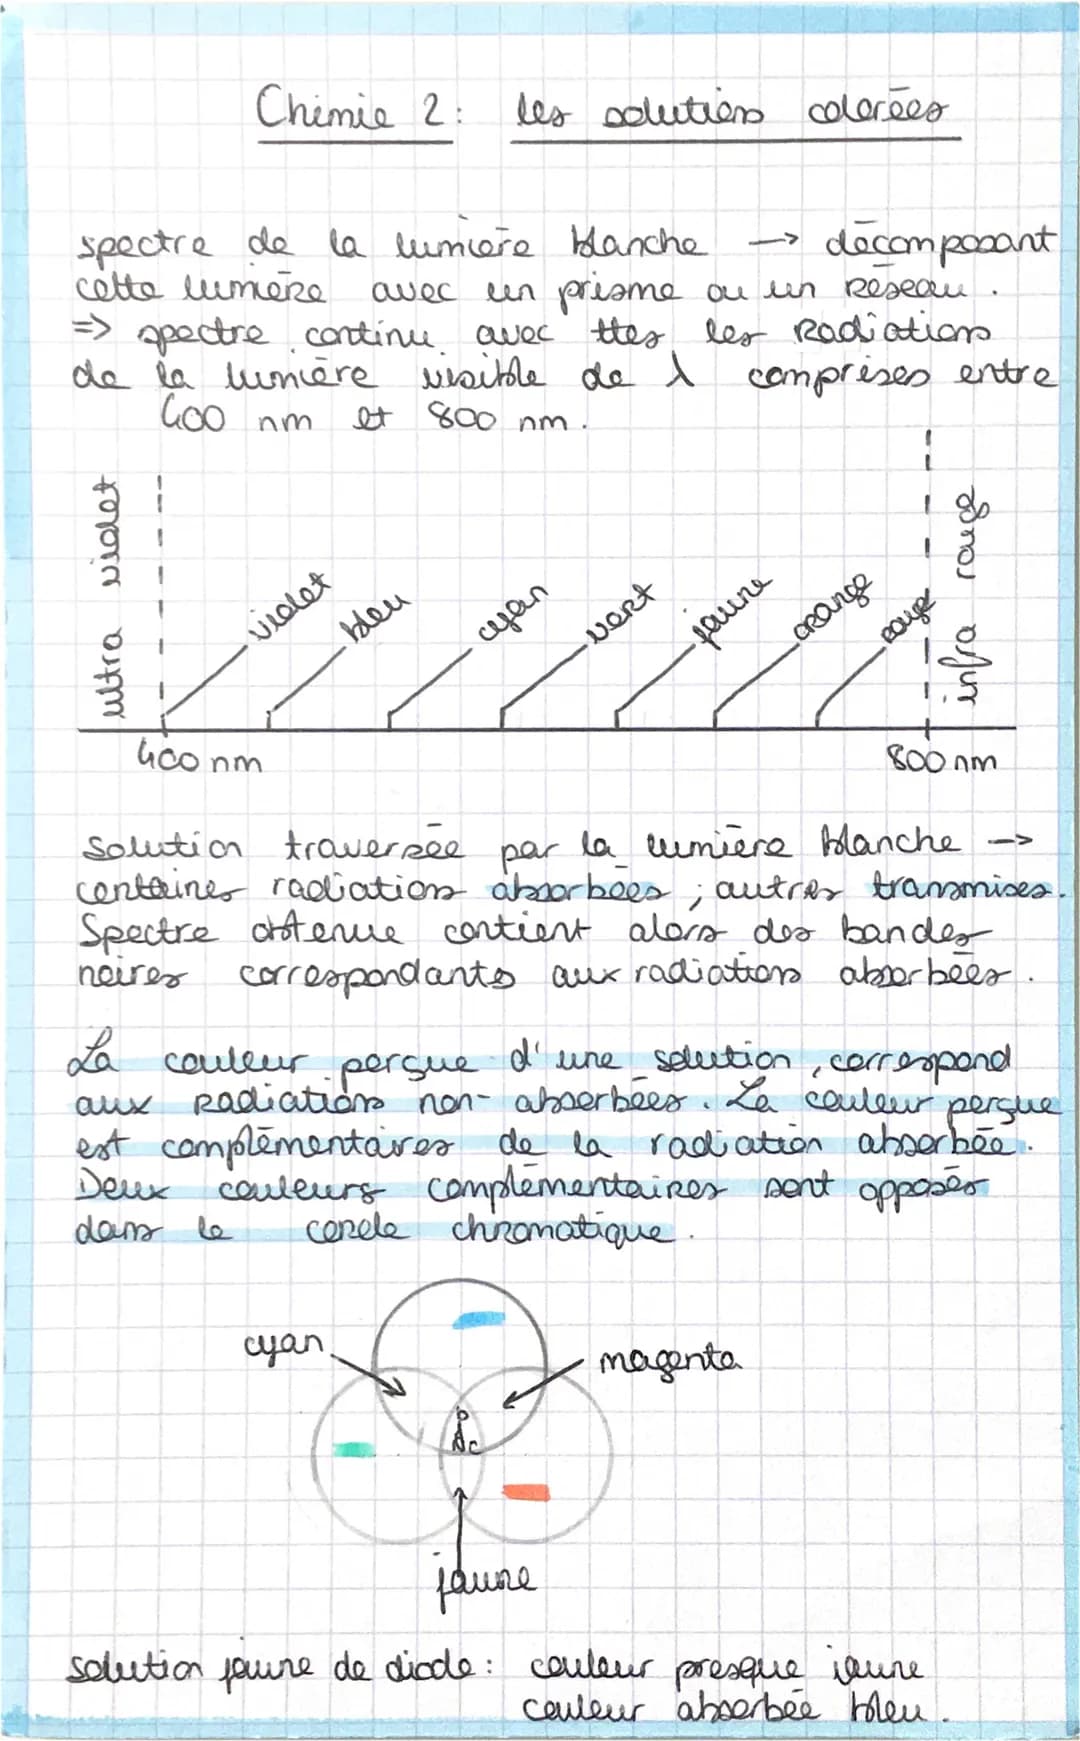 Chimie 2: les solutions colorées
spectre de la lumière blanche → décomposant
cette lumière avec un prisme ou un réseau.
=> spectre continu avec ttes les radiations
de la lumière visible de λ comprises entre
400 nm et 800 nm.
ultra violet
violet
bleu
cyan
vert
jaune
orange
rouge
infra rouge
400 nm
800 nm
Solution traversée par la lumière blanche →
certaines radiations absorbées ; autres transmises.
Spectre obtenue contient alors des bandes
noires correspondants aux radiations absorbées.
La couleur perçue d'une solution, correspond
aux radiations non-absorbées. La couleur perçue
est complémentaires de la radiation absorbée.
Deux couleurs complémentaires sont opposés
dans le cercle chromatique.
cyan
magenta
jaune
solution jaune de diode : couleur presque jaune
couleur absorbée bleu.